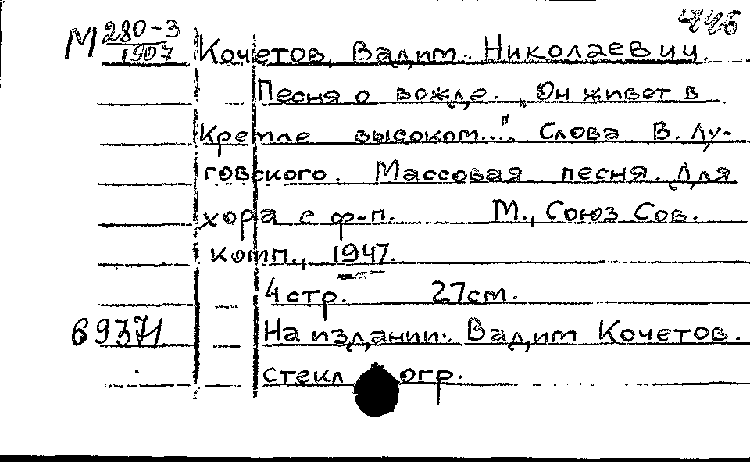 446
М 280-3
1907
Кочетов, Вадим Николаевич.
Песня о вожде. „Он живет в
Кремле высоком...". Слова В. Лу-
говского. Массовая песня. Для
хора с ф-п. М., Союз Сов.
комп., 1947.
4 стр. 27см.
69371 На издании: Вадим Кочетов.
стекл огр.